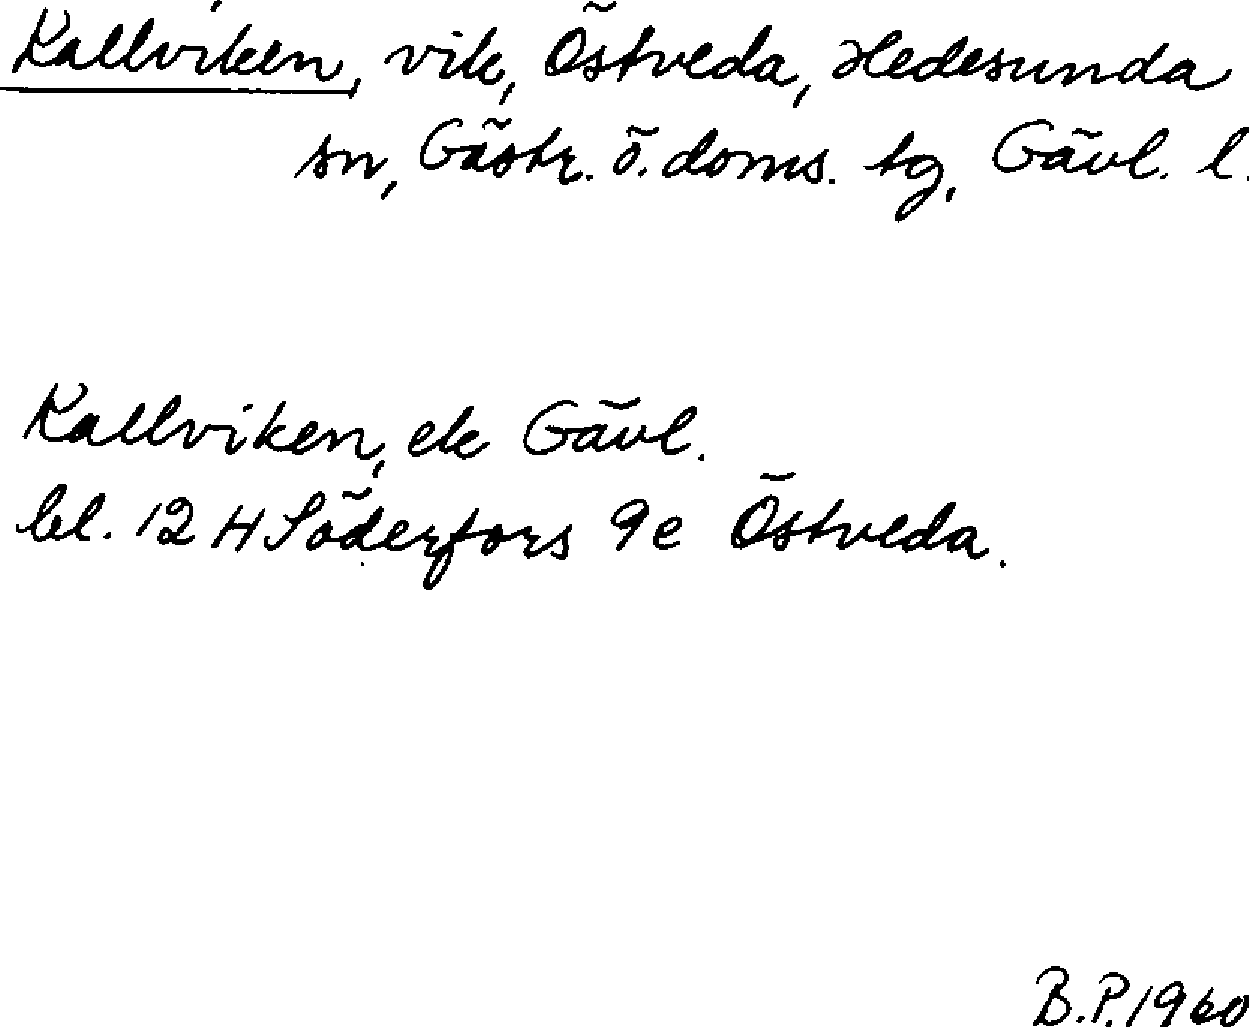 Kallviken, vik, Östveda, Hedesunda
sn, Gästr. ö. doms. tg, Gävl. l.
Kallviken, ek Gävl.
bl. 12 H Söderfors 9e Östveda.
B.P. 1960